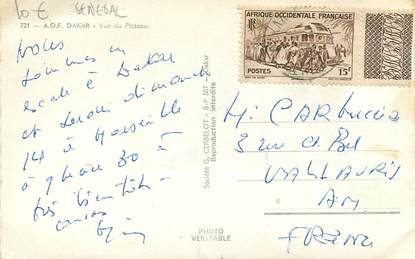 10 € SENEGAL
721 - A.O.F. DAKAR - Vue du Plateau
Nous
sommes en
escale à Dakar
et serons dimanche
14 à Marseille
à 9 heure 30 à
très bientôt
Société G. CERBELOT - B.P 507 Dakar
Reproduction Interdite
PHOTO
VERITABLE
AFRIQUE OCCIDENTALE FRANÇAISE
RF
POSTES 15F
M. CARBUCCIA
3 rue Ct. Bel
VALLAURIS
AM
FRANCE